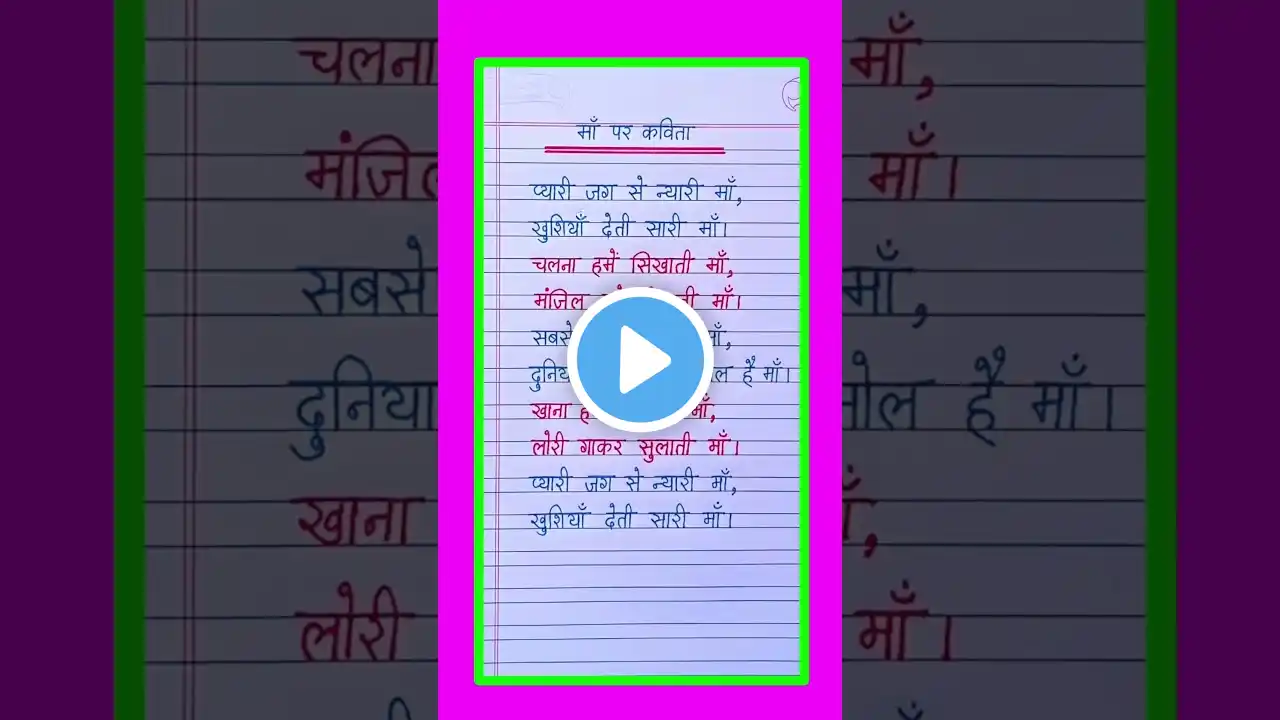 माँ पर कविता
प्यारी जग से न्यारी माँ,
खुशियाँ देती सारी माँ।
चलना हमें सिखाती माँ,
मंजिल माँ।
सबसे माँ,
दुनिया है माँ।
खाना माँ,
लोरी गाकर सुलाती माँ।
प्यारी जग से न्यारी माँ,
खुशियाँ देती सारी माँ।